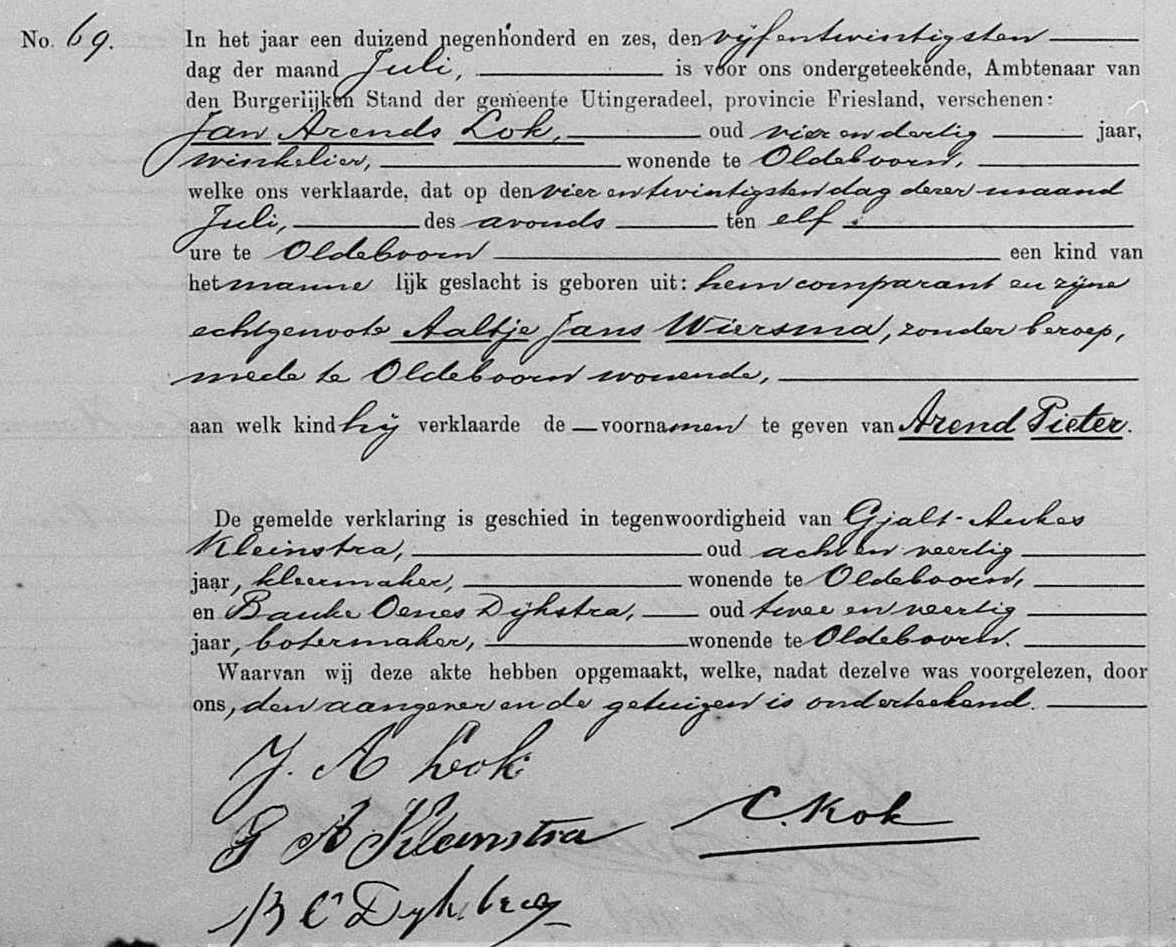 No. 69. In het jaar een duizend negenhonderd en zes, den vijfentwintigsten
dag der maand Juli, is voor ons ondergeteekende, Ambtenaar van
den Burgerlijken Stand der gemeente Utingeradeel, provincie Friesland, verschenen:
Jan Arends Lok, oud vier en dertig jaar,
winkelier, wonende te Oldeboorn,
welke ons verklaarde, dat op den vier en twintigsten dag dezer maand
Juli, des avonds ten elf
ure te Oldeboorn een kind van
het manne lijk geslacht is geboren uit: hem comparant en zijne
echtgenoote Aaltje Jans Wiersma, zonder beroep,
mede te Oldeboorn wonende,
aan welk kind hij verklaarde de voornamen te geven van Arend Pieter.
De gemelde verklaring is geschied in tegenwoordigheid van Gjalt Aukes
Kleinstra, oud acht en veertig
jaar, kleermaker, wonende te Oldeboorn,
en Bauke Oenes Dijkstra, oud twee en veertig
jaar, botermaker, wonende te Oldeboorn.
Waarvan wij deze akte hebben opgemaakt, welke, nadat dezelve was voorgelezen, door
ons, den aangever en de getuigen is onderteekend.
J. A Lok
G A Kleinstra C. Kok